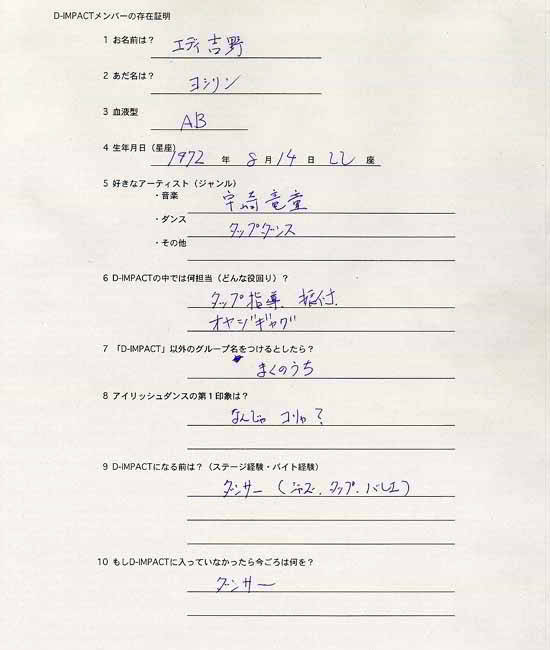 D-IMPACTメンバーの存在証明
1 お名前は？ エディ吉野
2 あだ名は？ ヨシリン
3 血液型 AB
4 生年月日（星座） 1972 年 8 月 14 日 しし 座
5 好きなアーティスト（ジャンル）
・音楽 宇崎竜童
・ダンス タップダンス
・その他
6 D-IMPACTの中では何担当（どんな役回り）？
タップ指導、振付、
オヤジギャグ
7 「D-IMPACT」以外のグループ名をつけるとしたら？
まくのうち
8 アイリッシュダンスの第1印象は？
なんじゃ コリャ？
9 D-IMPACTになる前は？（ステージ経験・バイト経験）
ダンサー（ジャズ、タップ、バレエ）
10 もしD-IMPACTに入っていなかったら今ごろは何を？
ダンサー